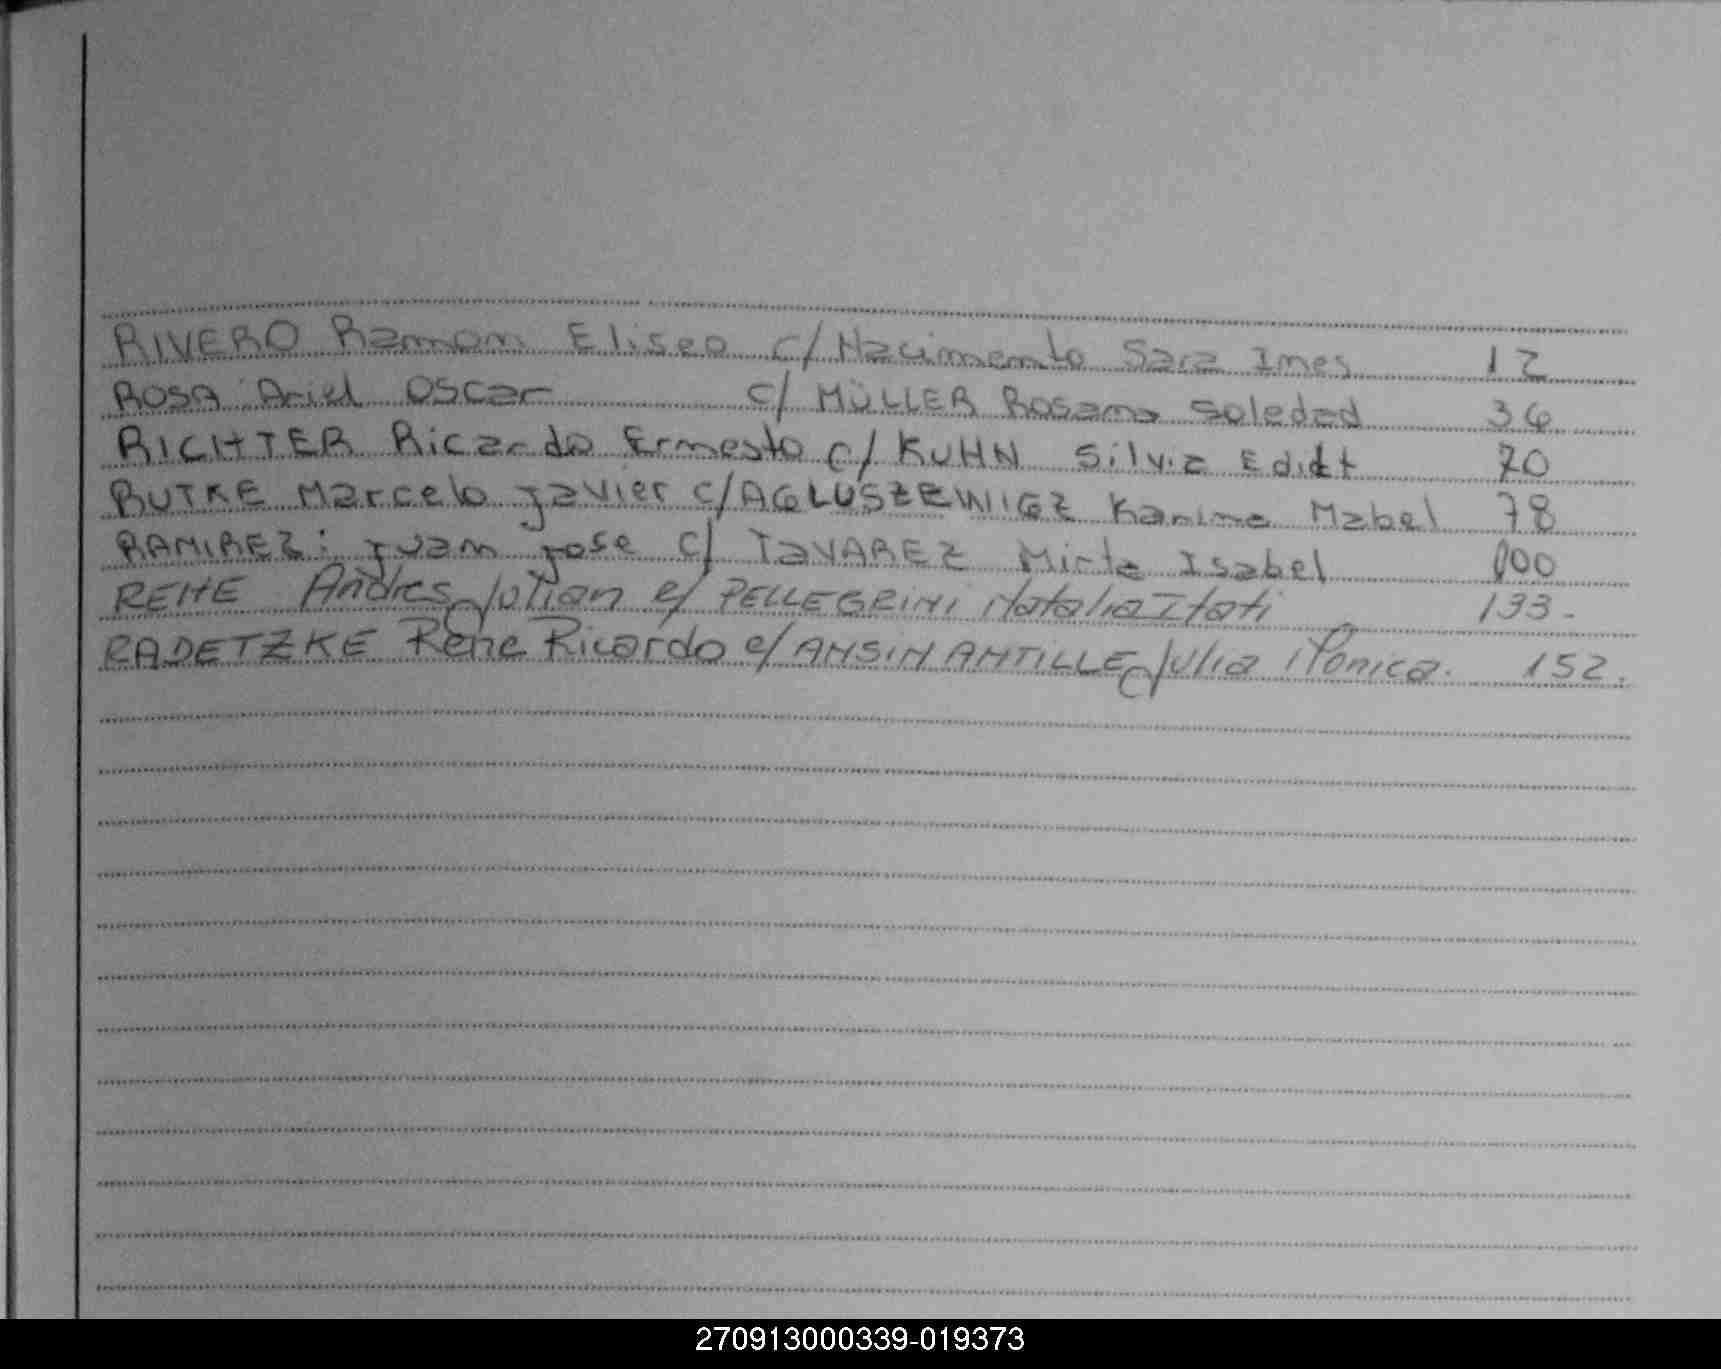 RIVERO Ramon Eliseo c/ Nacimento Sara Ines 12
ROSA Ariel Oscar c/ MÜLLER Rosana Soledad 36
RICHTER Ricardo Ernesto c/ KUHN Silvia Edict 70
RUTKE Marcelo Javier c/ AGLUSZEWIGZ Karina Mabel 78
RAMIREZ: Juan Jose c/ TaVAREZ Mirta Isabel 100
REHE Andres Julian c/ PELLEGRINI Natalia Itati 133.-
RADETZKE Rene Ricardo c/ ANSIN ANTILLE Julia Monica. 152.
270913000339-019373